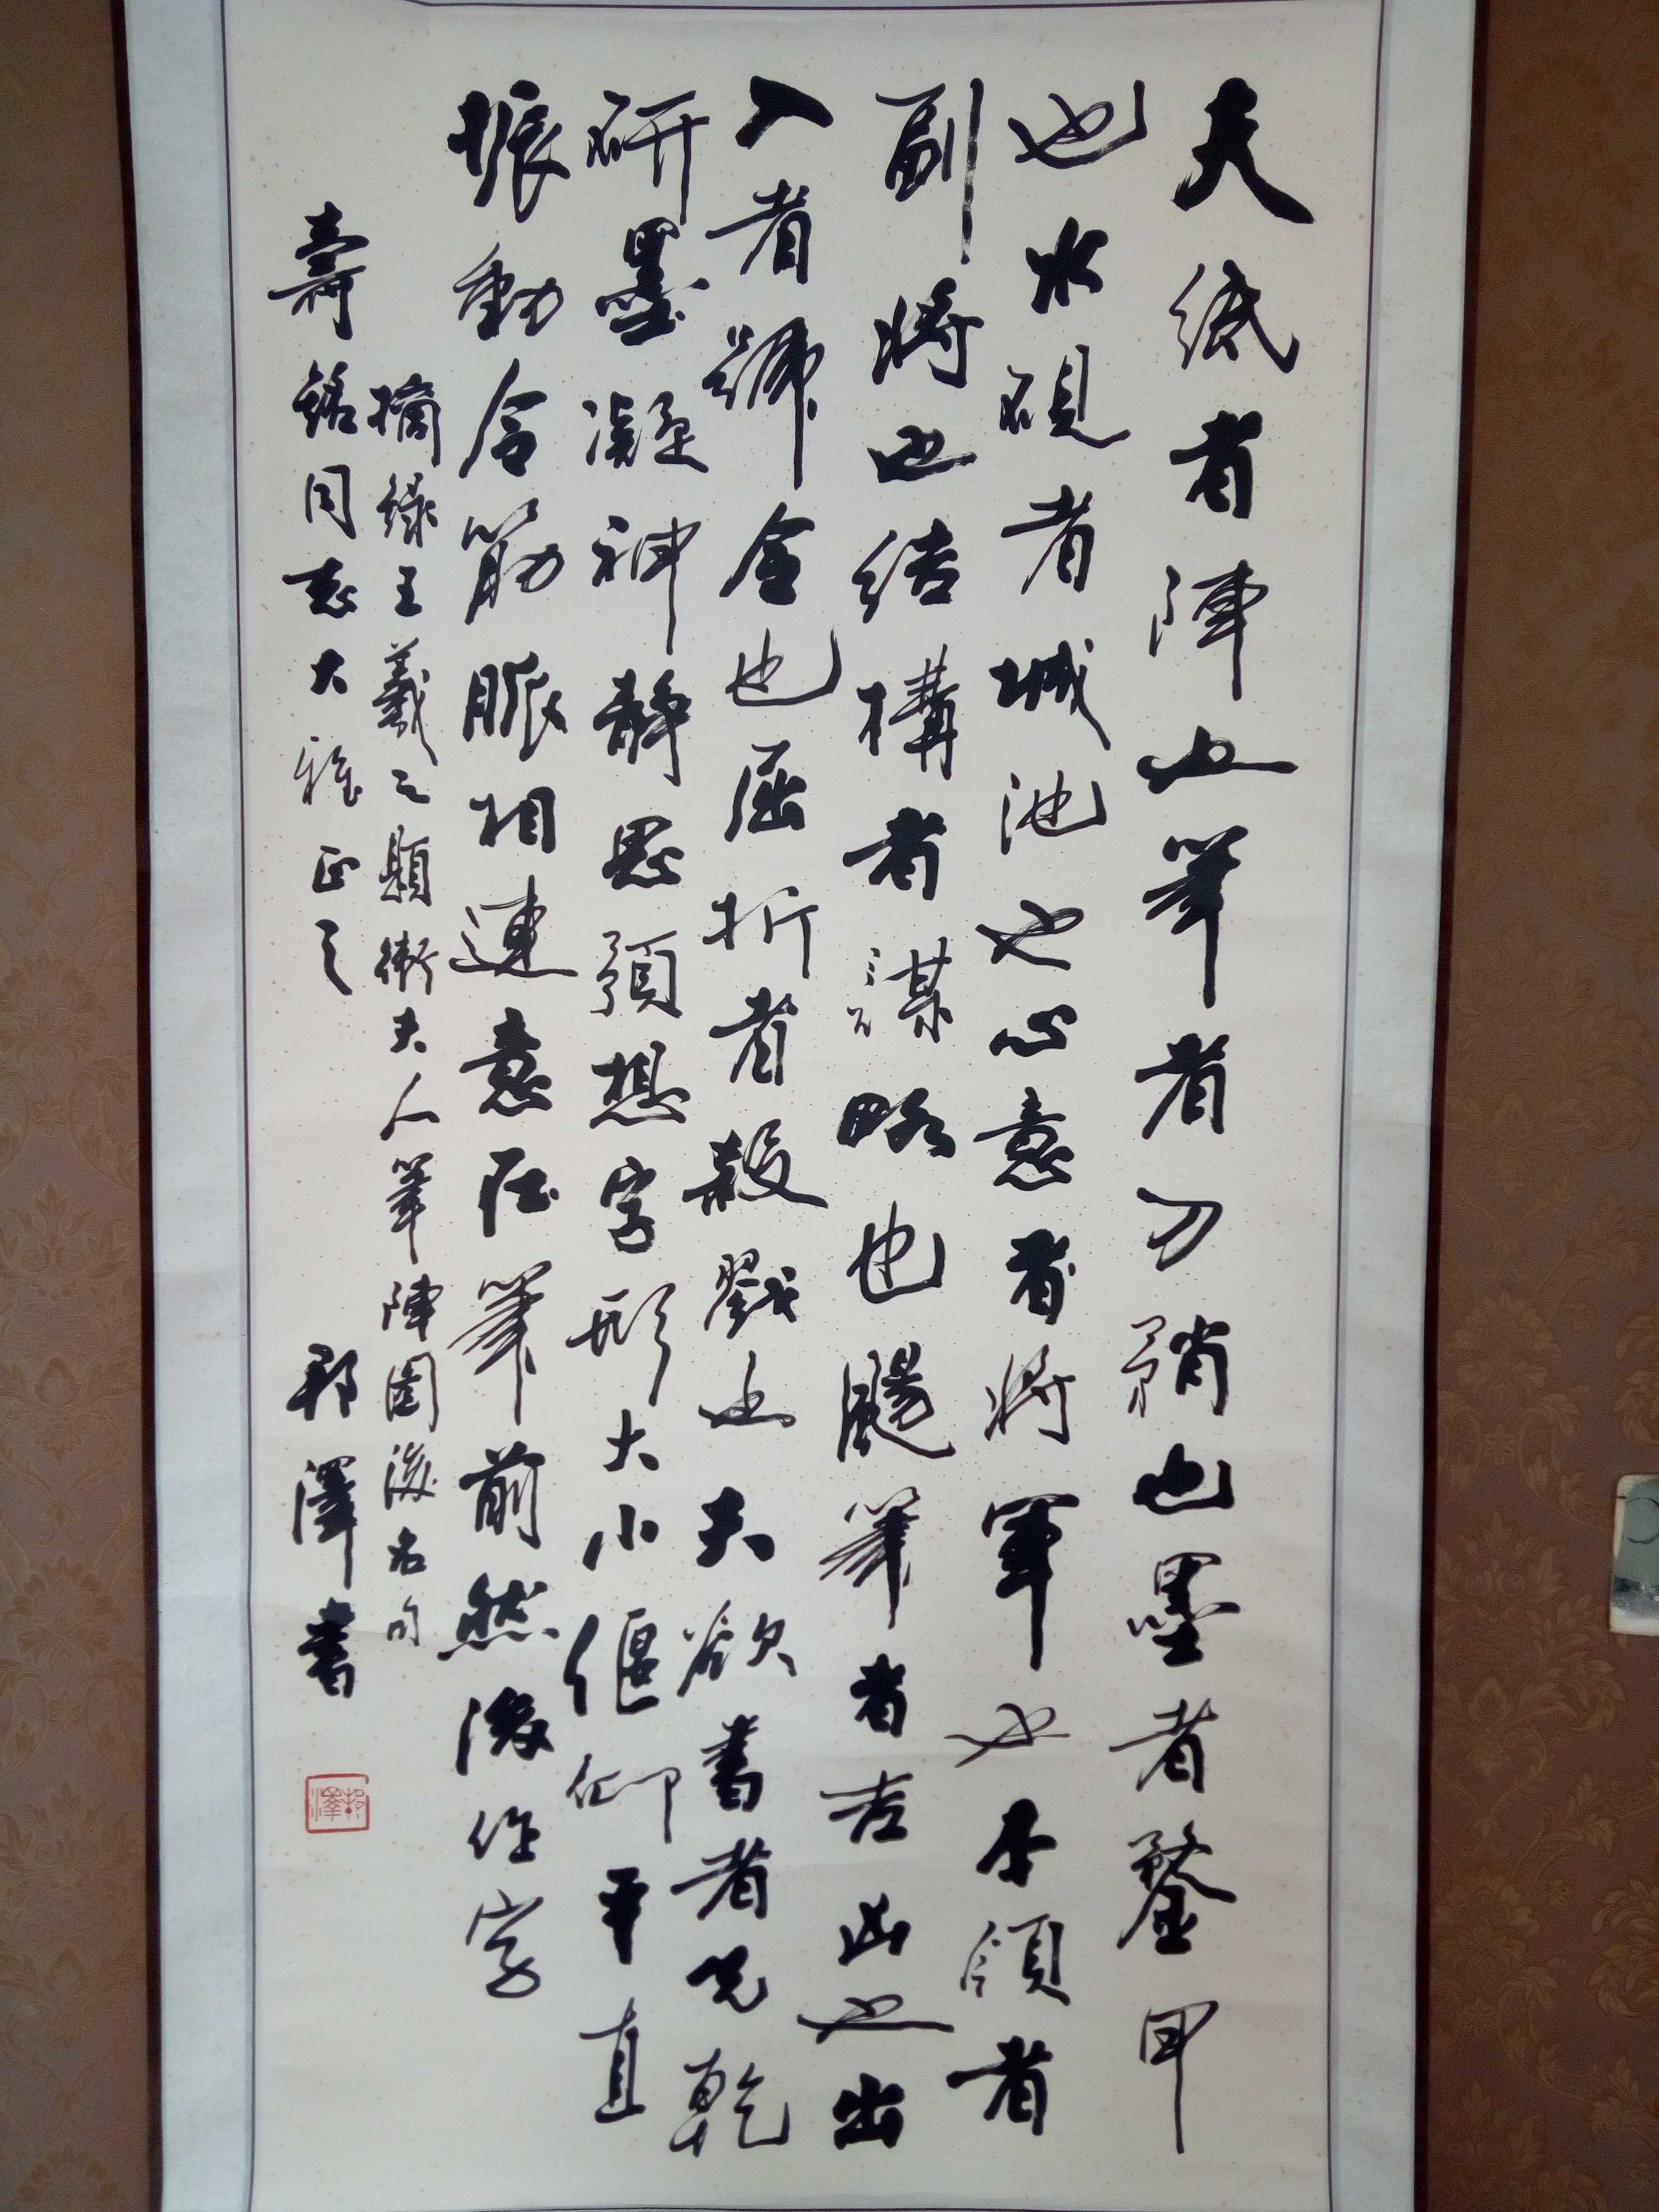 夫紙者陣也筆者刀矟也墨者鍪甲
也水硯者城池也心意者將軍也本領者
副將也結構者謀略也颺筆者吉凶也出
入者號令也屈折者殺戮也夫欲書者先乾
研墨凝神靜思預想字形大小偃仰平直
振動令筋脈相連意在筆前然後作字
摘錄王羲之題衛夫人筆陣圖後名句
壽銘同志大雅正之
郭澤書